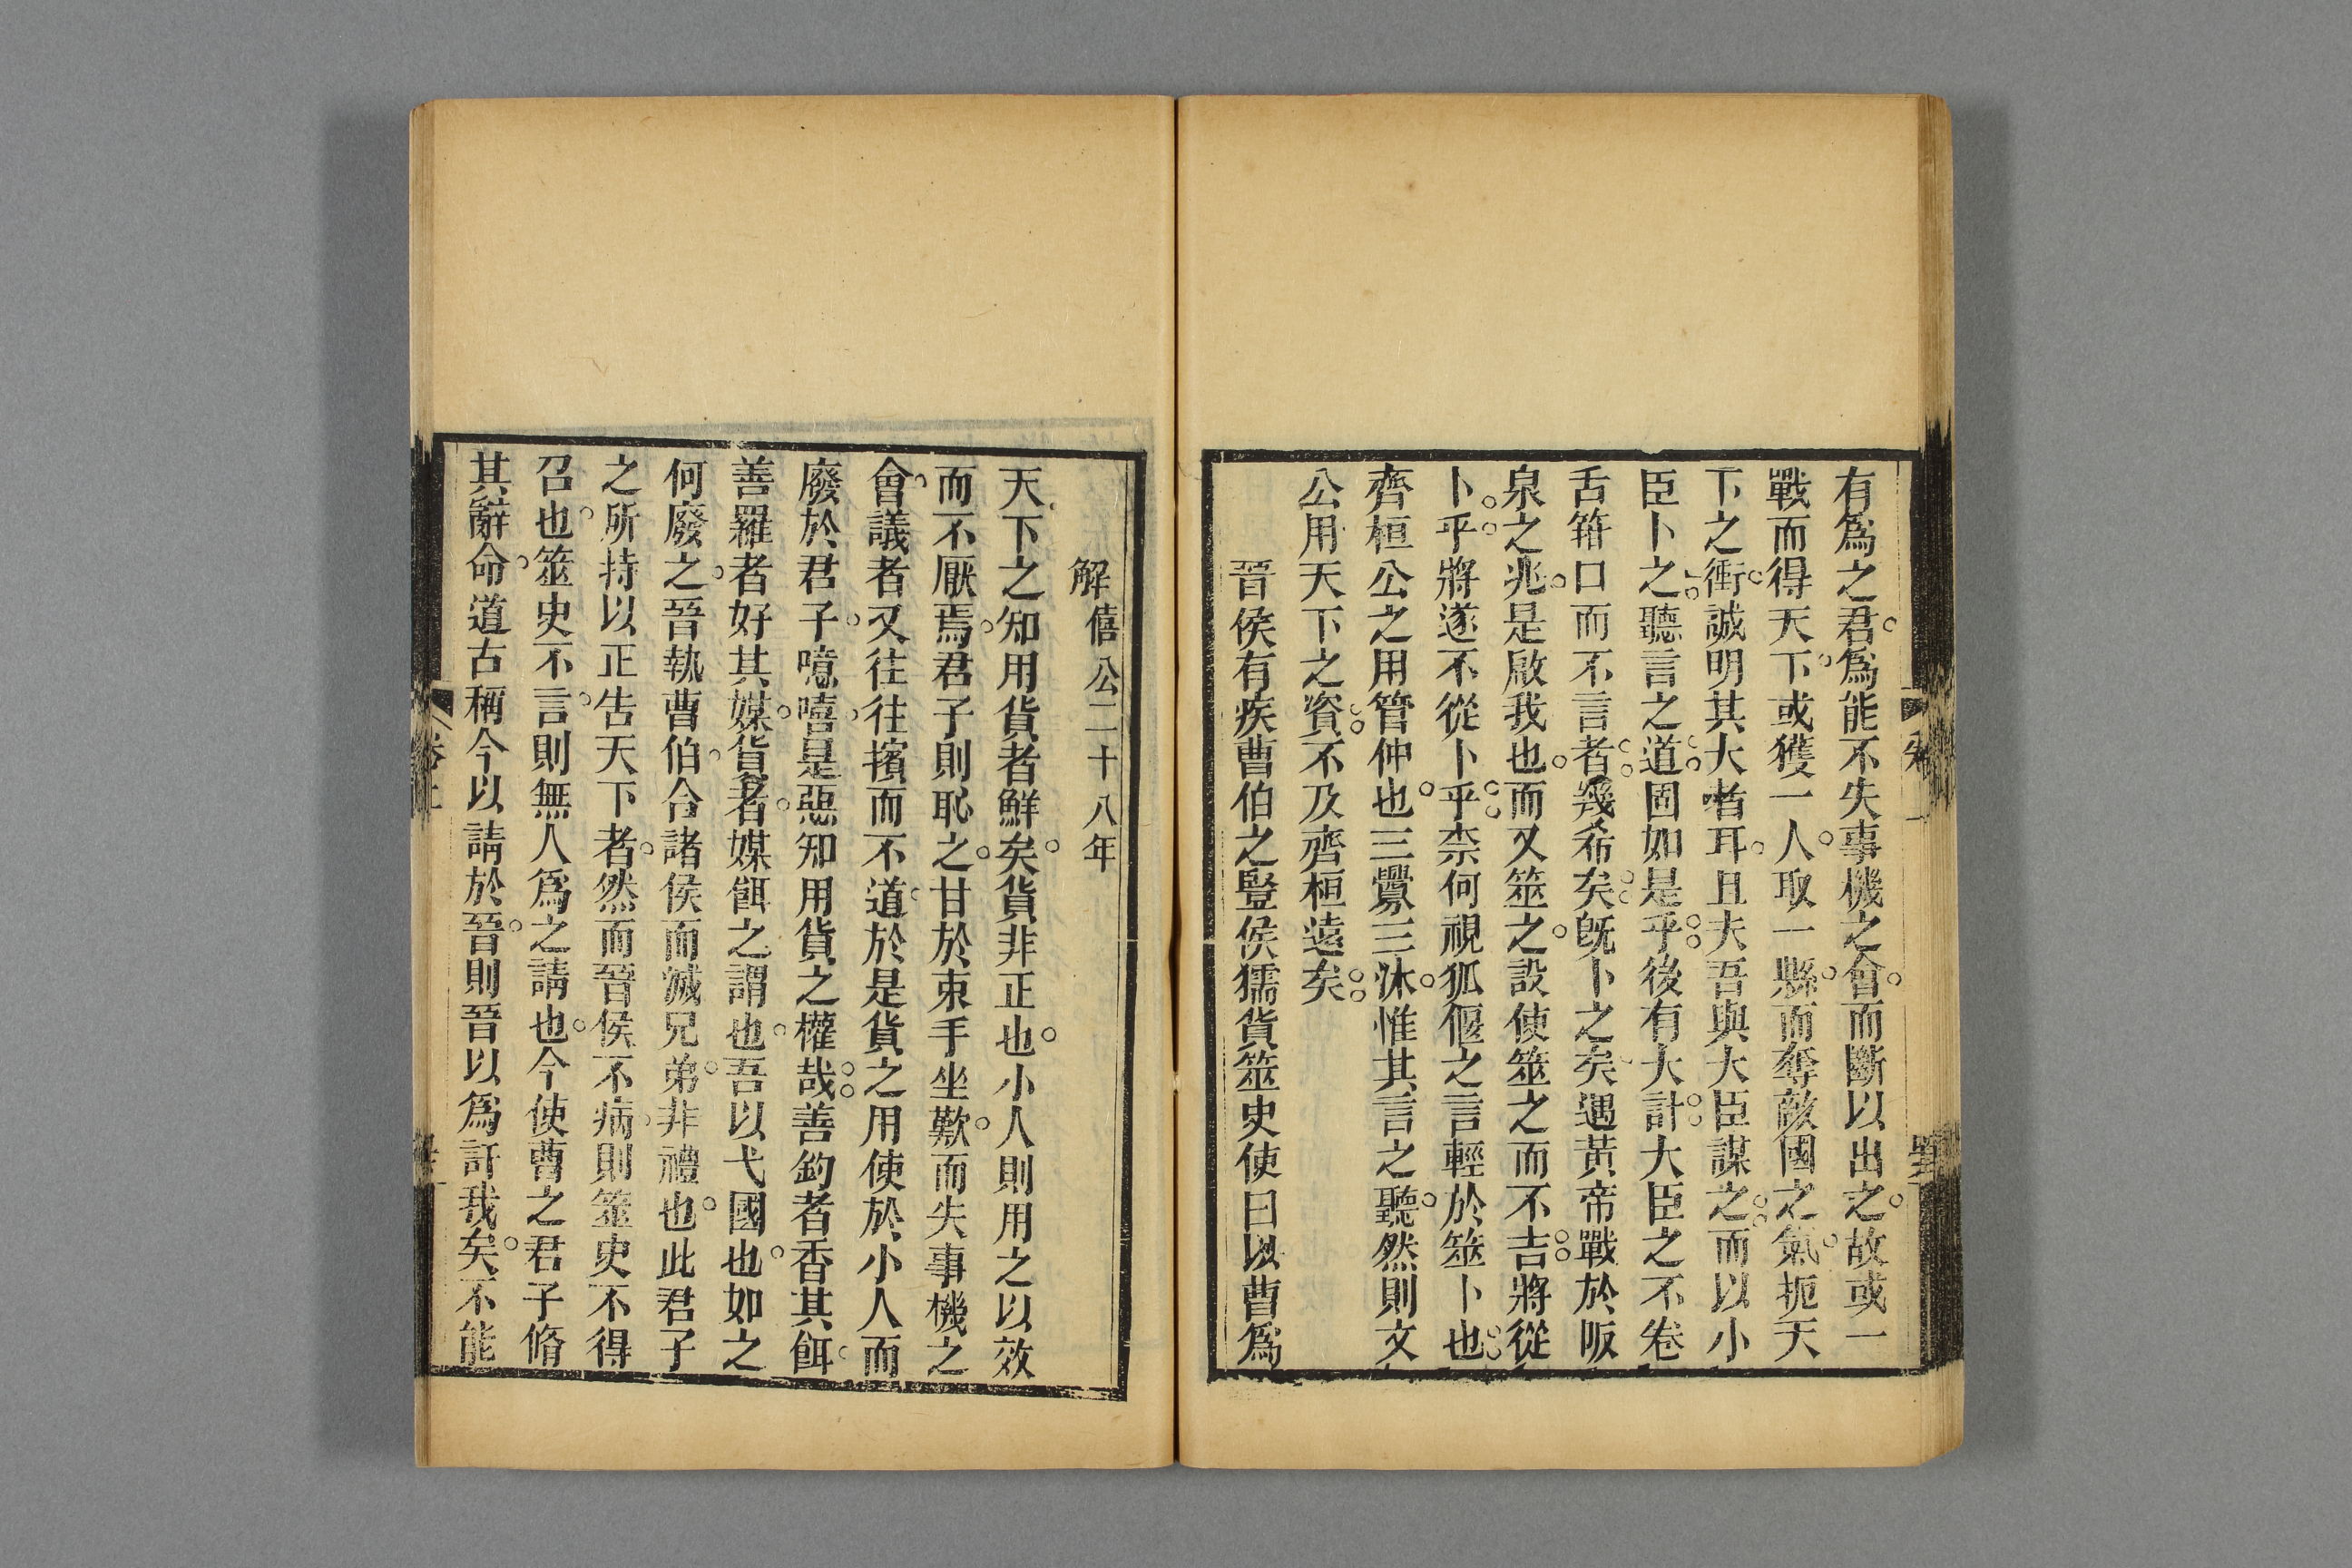 有爲之君爲能不失事機之會而斷以出之故或一
戰而得天下或獲一人取一縣而奪敵國之氣扼天
下之衝誠明其大者耳且夫吾與大臣謀之而以小
臣卜之聽言之道固如是乎後有大計大臣之不卷
舌箝口而不言者幾希矣旣卜之矣遇黃帝戰於阪
泉之兆是啟我也而又筮之設使筮之而不吉將從
卜乎將遂不從卜乎柰何視狐偃之言輕於筮卜也
齊桓公之用管仲也三釁三沐惟其言之聽然則文
公用天下之資不及齊桓遠矣
晉侯有疾曹伯之豎侯獳貨筮史使曰以曹爲
解僖公二十八年
天下之知用貨者鮮矣貨非正也小人則用之以效
而不厭焉君子則恥之甘於束手坐歎而失事機之
會議者又往往擯而不道於是貨之用使於小人而
廢於君子噫嘻是惡知用貨之權哉善釣者香其餌
善羅者好其媒貨者媒餌之謂也吾以弋國也如之
何廢之晉執曹伯合諸侯而滅兄弟非禮也此君子
之所持以正告天下者然而晉侯不病則筮史不得
召也筮史不言則無人爲之請也今使曹之君子脩
其辭命道古稱今以請於晉則晉以爲訐我矣不能